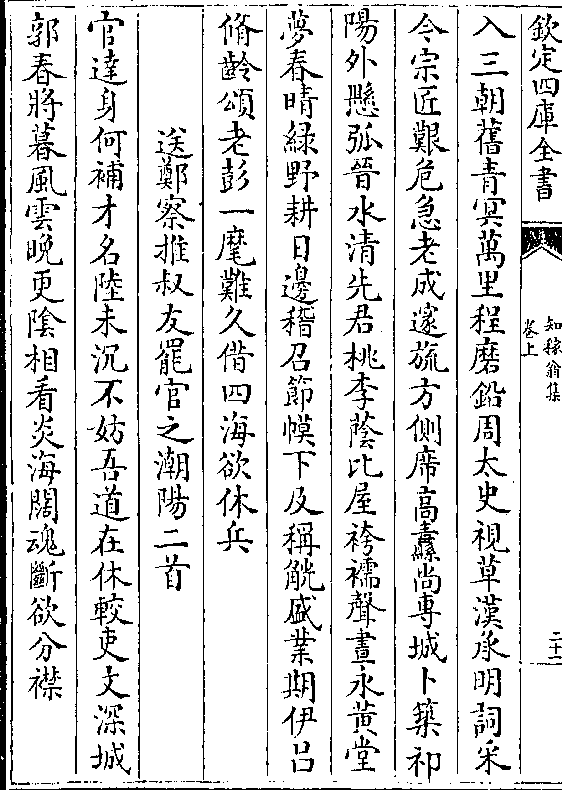 欽定四庫全書
知稼翁集
卷上
二十一
入三朝舊青冥萬里程磨鉛周太史視草漢承明詞采
今宗匠艱危急老成邃旒方側席高纛尚專城卜築祁
陽外懸弧晉水清先君桃李蔭比屋袴襦聲晝永黃堂
夢春晴緑野耕日邊稽召節幙下及稱觥盛業期伊吕
脩齡頌老彭一麾難久借四海欲休兵
送鄭察推叔友罷官之潮陽二首
官達身何補才名陸未沉不妨吾道在休較吏文深城
郭春將暮風雲晚更隂相看炎海闊魂斷欲分襟